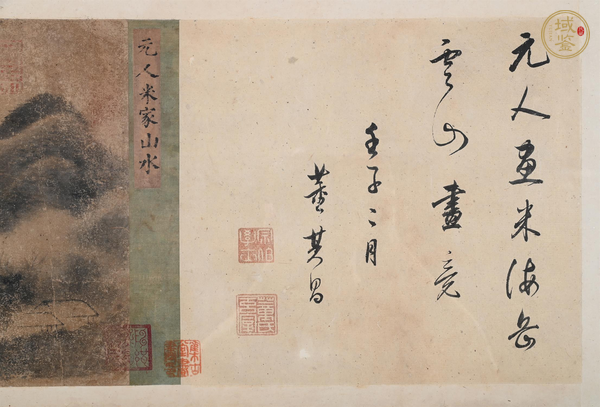 元人畫米海岳
雲山畫竟
壬子二月
董其昌
元人米家山水
域鉴